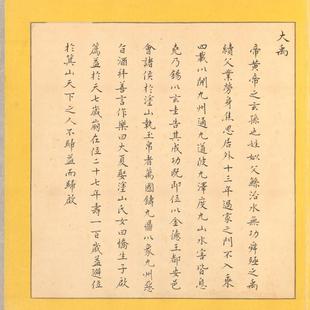 大禹
帝黄帝之玄孫也姓姒父鯀治水無功舜殛之禹
續父業勞身焦思居外十三年過家之門不入乘
四載以開九州通九道陂九澤度九山水害皆息
堯乃錫以玄圭告其成功既即位以金德王都安邑
會諸侯於塗山執玉帛者萬國鑄九鼎以象九州惡
旨酒拜善言作樂曰大夏娶塗山氏女曰憍生子啟
薦益於天七歲崩在位二十七年壽一百歲益避位
於箕山天下之人不歸益而歸啟